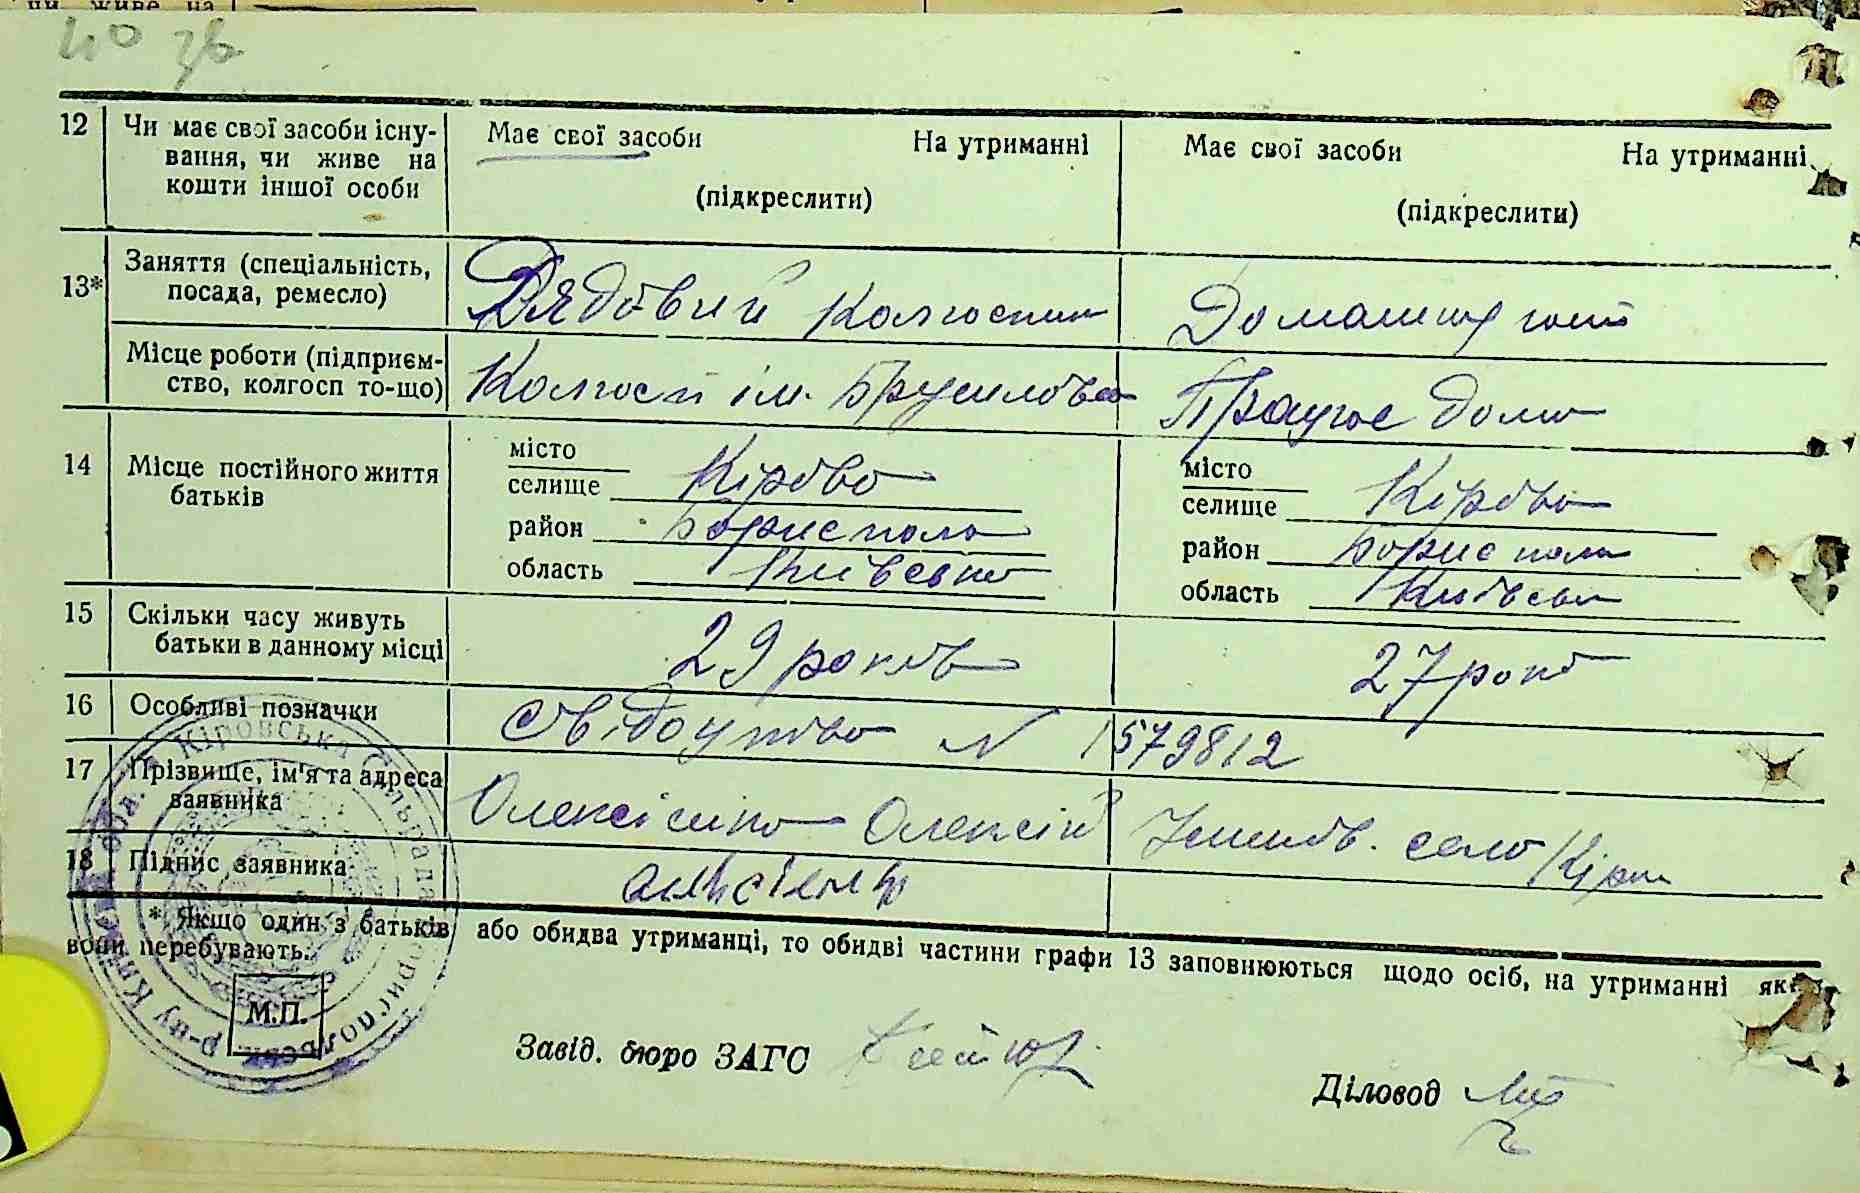 40 зв
12 Чи має свої засоби існу-
вання, чи живе на
кошти іншої особи
Має свої засоби На утриманні
(підкреслити)
Має свої засоби На утриманні
(підкреслити)
13* Заняття (спеціальність,
посада, ремесло)
Рядовий колгоспник
Домашня госп
Місце роботи (підприєм-
ство, колгосп то-що)
Колгосп ім. Брусилова
Працює дома
14 Місце постійного життя
батьків
місто
селище Кірово
район Бориспол
область Київська
місто
селище Кірово
район Бориспол
область Київськ
15 Скільки часу живуть
батьки в данному місці
29 років
27 рокі
16 Особливі позначки
Свідоцтво N 1579812
17 Прізвище, ім'я та адреса
заявника
Олексієнко Олексій село Кірово
18 Підпис заявника
* Якщо один з батьків або обидва утриманці, то обидві частини графи 13 заповнюються щодо осіб, на утриманні яких
вони перебувають.
Кіровська Сільрада Бориспольськ. р-ну Київськ. обл.
М.П.
Завід. бюро ЗАГС
Діловод